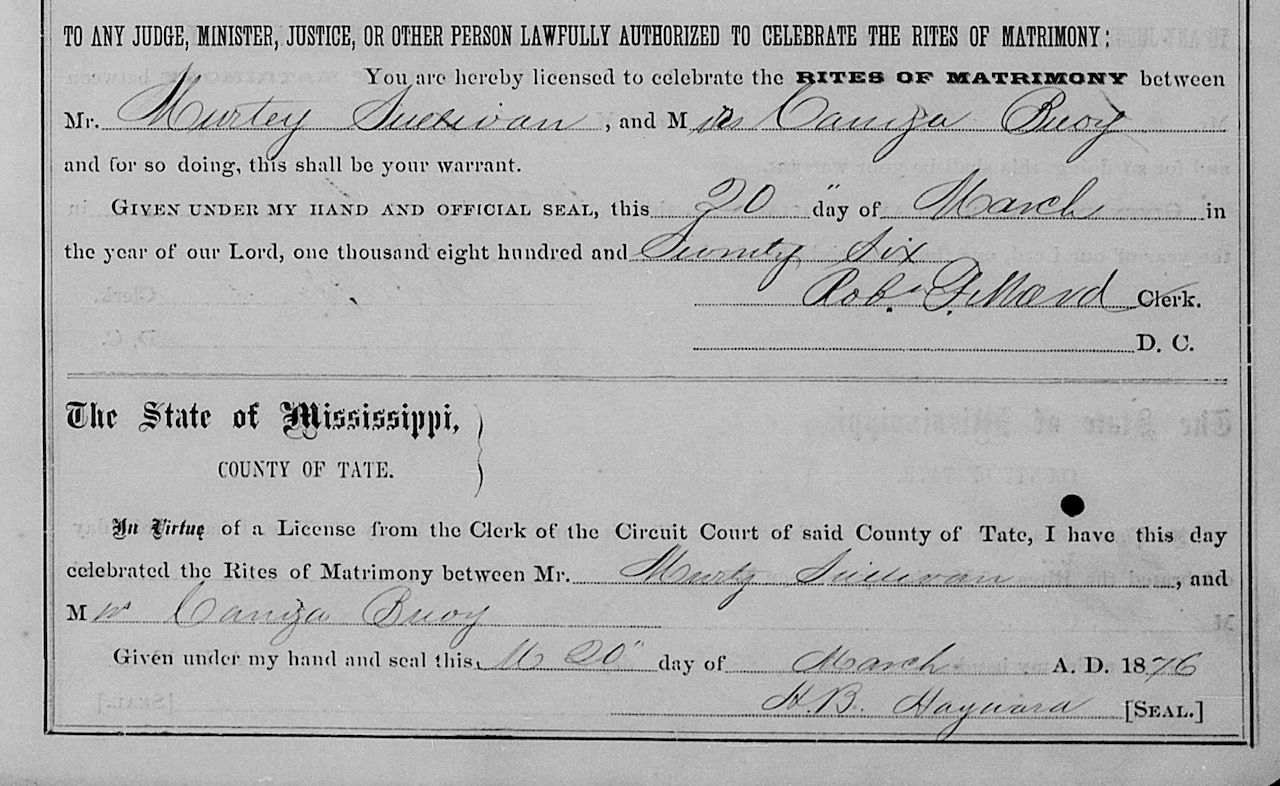 TO ANY JUDGE, MINISTER, JUSTICE, OR OTHER PERSON LAWFULLY AUTHORIZED TO CELEBRATE THE RITES OF MATRIMONY:
You are hereby licensed to celebrate the RITES OF MATRIMONY between
Mr. Murtey Sullivan, and M rs Caniza Buoy
and for so doing, this shall be your warrant.
GIVEN UNDER MY HAND AND OFFICIAL SEAL, this 20" day of March in
the year of our Lord, one thousand eight hundred and Seventy Six
Clerk.
D. C.
The State of Mississippi,
COUNTY OF TATE.
In Virtue of a License from the Clerk of the Circuit Court of said County of Tate, I have this day
celebrated the Rites of Matrimony between Mr. Murty Sullivan, and
M rs Caniza Buoy
Given under my hand and seal this, 20" day of March A. D. 1876
H. B. Hayward [SEAL.]